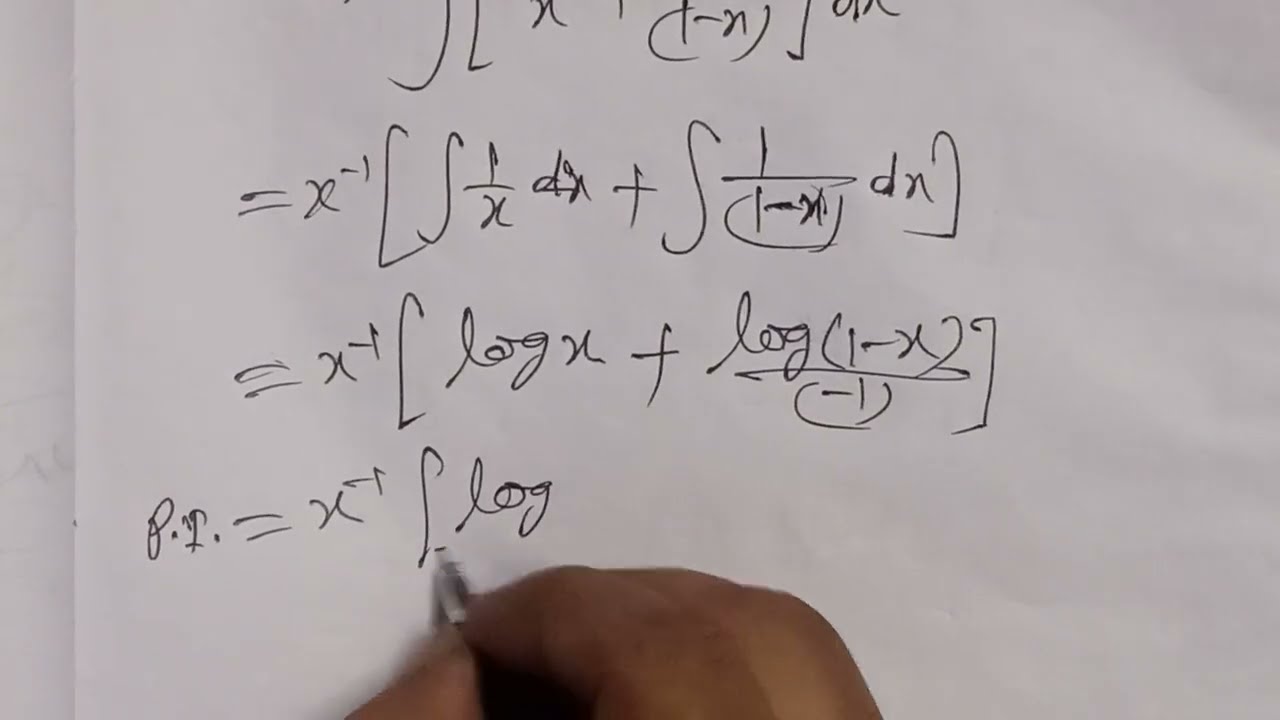 ∫[ x + (1-x) ] dx
= x⁻¹ [ ∫ 1/x dx + ∫ 1/(1-x) dx ]
= x⁻¹ [ log x + log(1-x)/(-1) ]
P.I. = x⁻¹ ∫ log